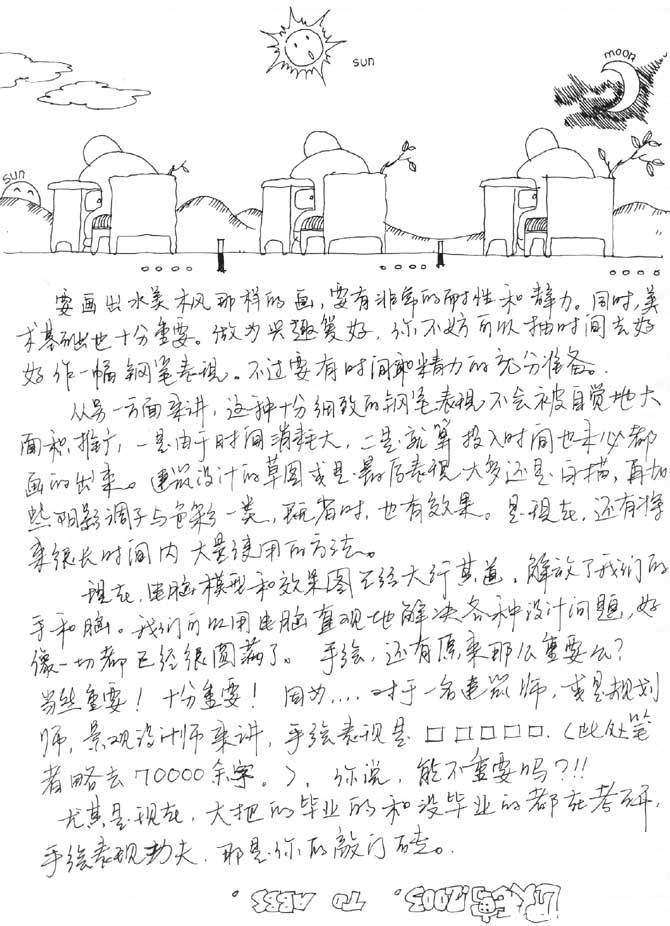 sun
moon
sun
要画出水美枫那样的画，要有非常的耐性和静力。同时，美
术基础也十分重要。做为兴趣爱好，你不妨可以抽时间去好
好作一幅钢笔表现。不过要有时间和精力的充分准备。
从另一方面来讲，这种十分细致的钢笔表现不会被自觉地大
面积推广，一是由于时间消耗大，二是就算投入时间也未必都
画的出来。建筑设计的草图或是最后表现大多还是白描，再加
些阴影调子与色彩一类，既省时，也有效果。是现在，还有将
来很长时间内大量使用的方法。
现在，电脑模型和效果图已经大行其道，解放了我们的
手和脑。我们可以用电脑直观地解决各种设计问题，好
像一切都已经很圆满了。手绘，还有原来那么重要么？
当然重要！十分重要！因为....对于一名建筑师，或是规划
师，景观设计师来讲，手绘表现是□□□□□.（此处笔
者略去70000余字。），你说，能不重要吗？!!
尤其是现在，大把的毕业的和没毕业的都在考研，
手绘表现功夫，那是你的敲门砖。
2003. TO ABBS.